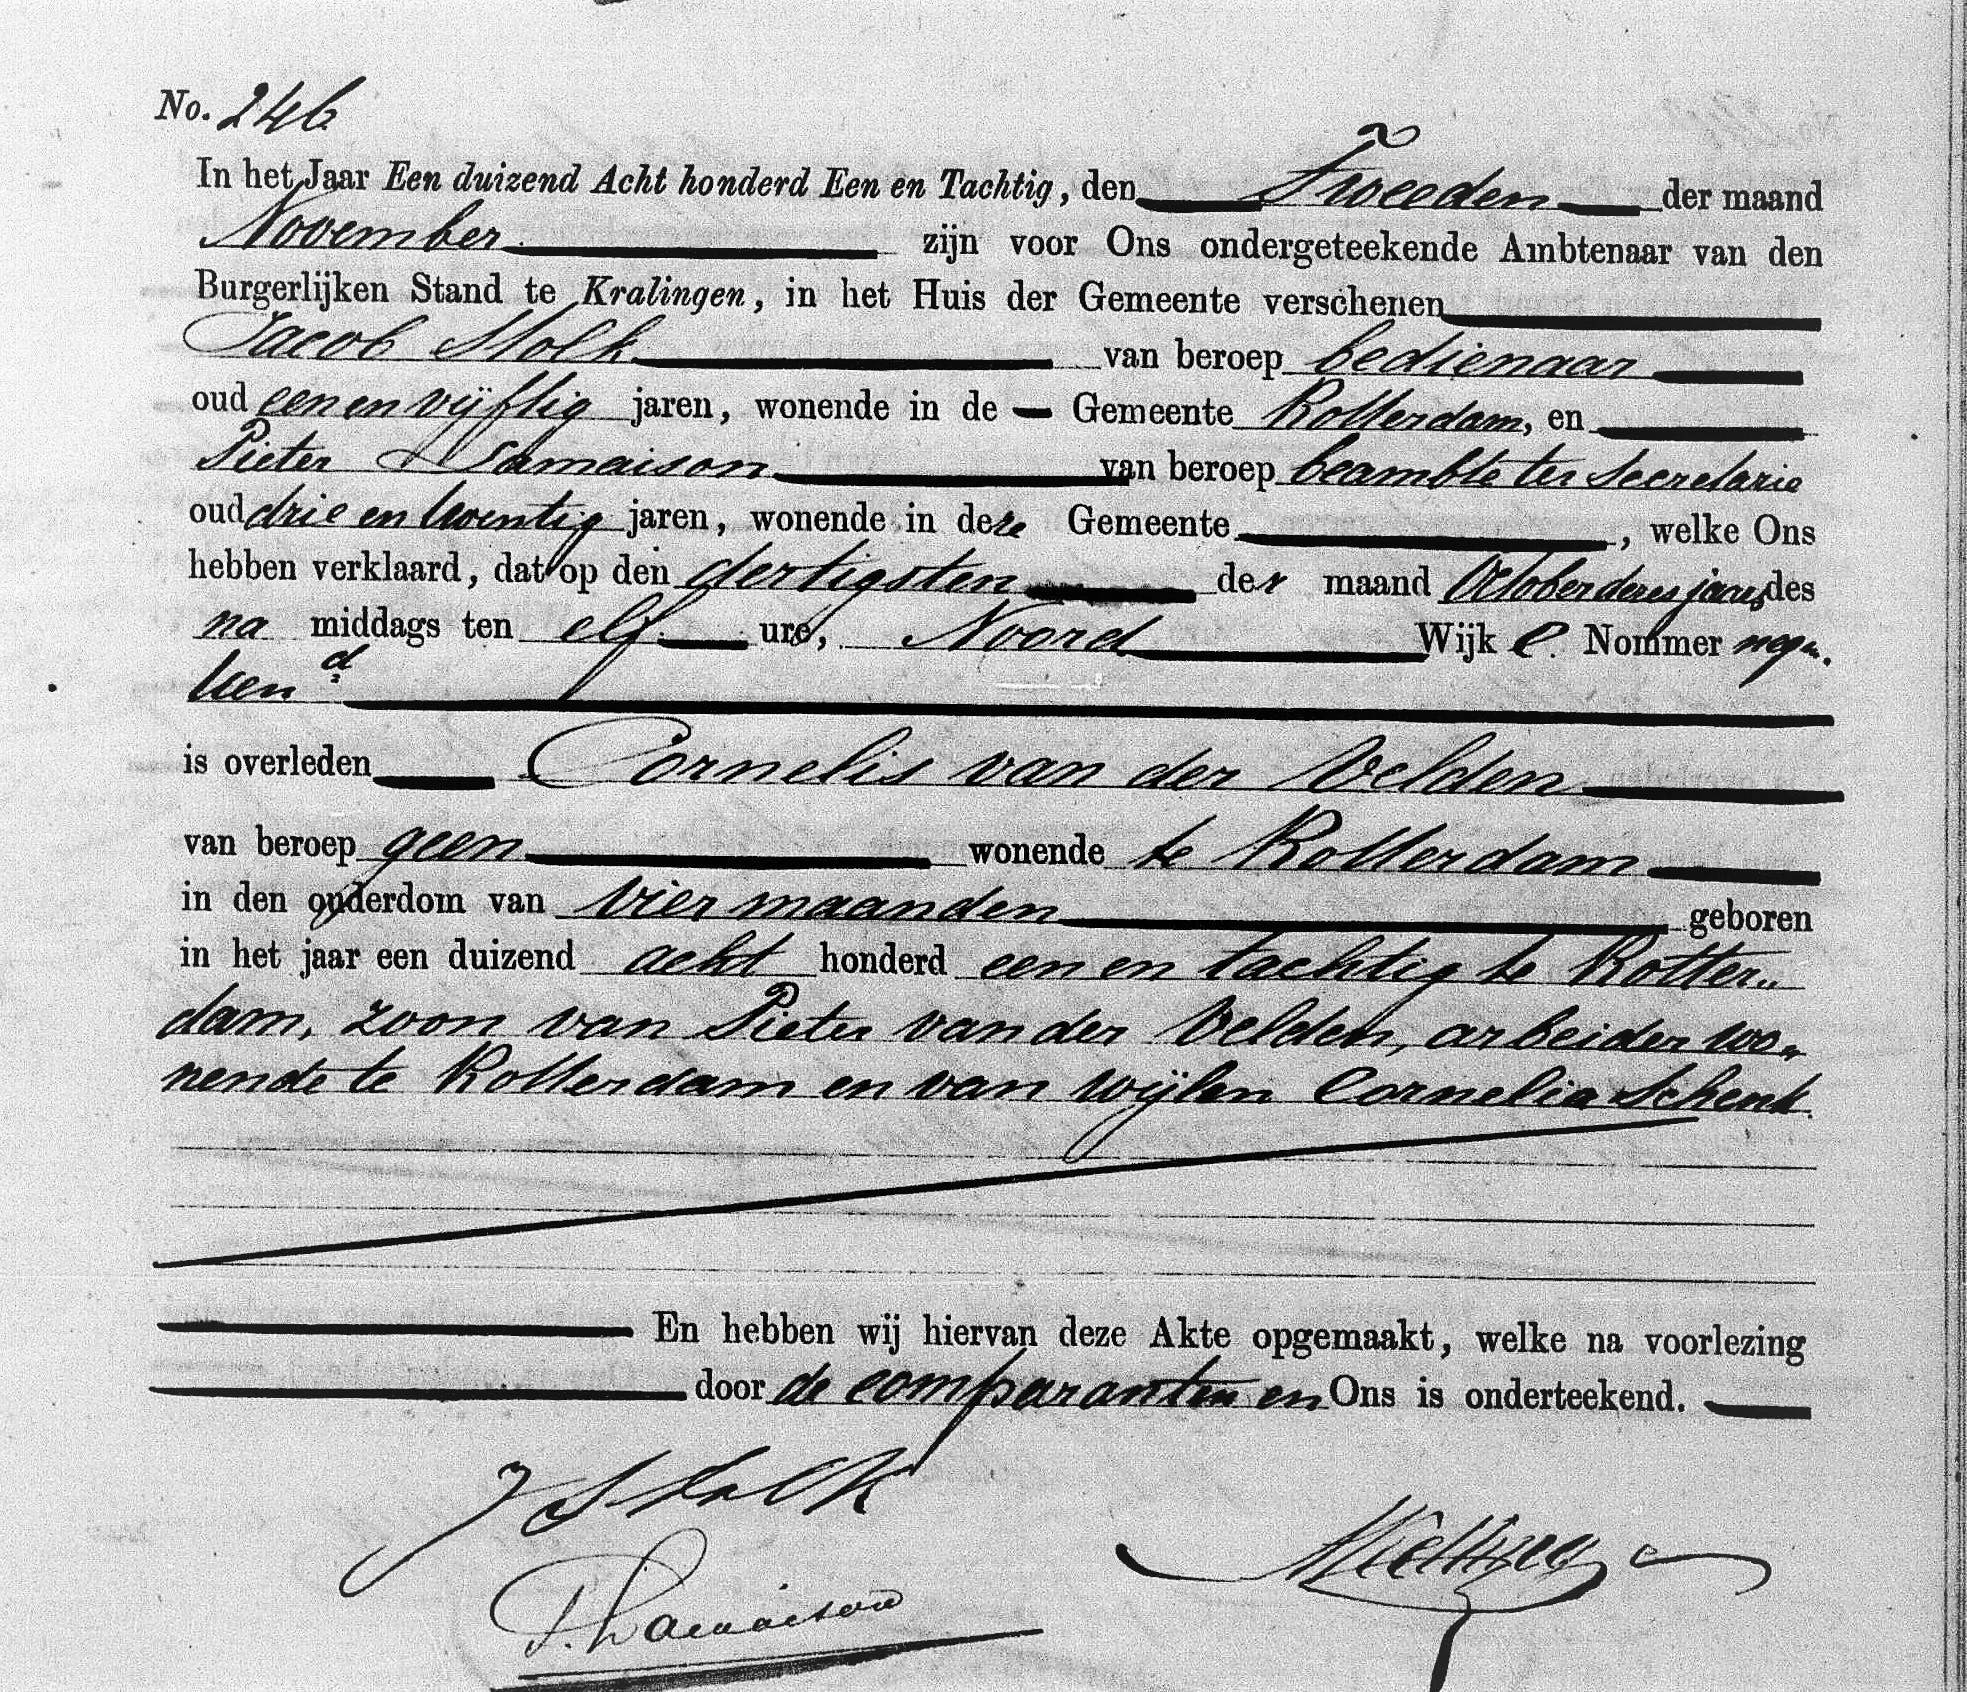 No. 246
In het Jaar Een duizend Acht honderd Een en Tachtig, den Tweeden der maand
November zijn voor Ons ondergeteekende Ambtenaar van den
Burgerlijken Stand te Kralingen, in het Huis der Gemeente verschenen
Jacob Stolk van beroep bedienaar
oud een en vijftig jaren, wonende in de Gemeente Rotterdam, en
Pieter Lamaison van beroep beambte ter Secretarie
oud drie en twentig jaren, wonende in deze Gemeente, welke Ons
hebben verklaard, dat op den dertigsten der maand October dezes jaars des
na middags ten elf ure, Noord Wijk C. Nommer negen
tien d
is overleden Cornelis van der Velden
van beroep geen wonende te Rotterdam
in den ouderdom van vier maanden geboren
in het jaar een duizend acht honderd een en tachtig te Rotter„
dam, zoon van Pieter van der Velden, arbeider wo„
nende te Rotterdam en van wijlen Cornelia Schenk.
En hebben wij hiervan deze Akte opgemaakt, welke na voorlezing
door de comparanten en Ons is onderteekend.
J Stolk
P. Lamaison